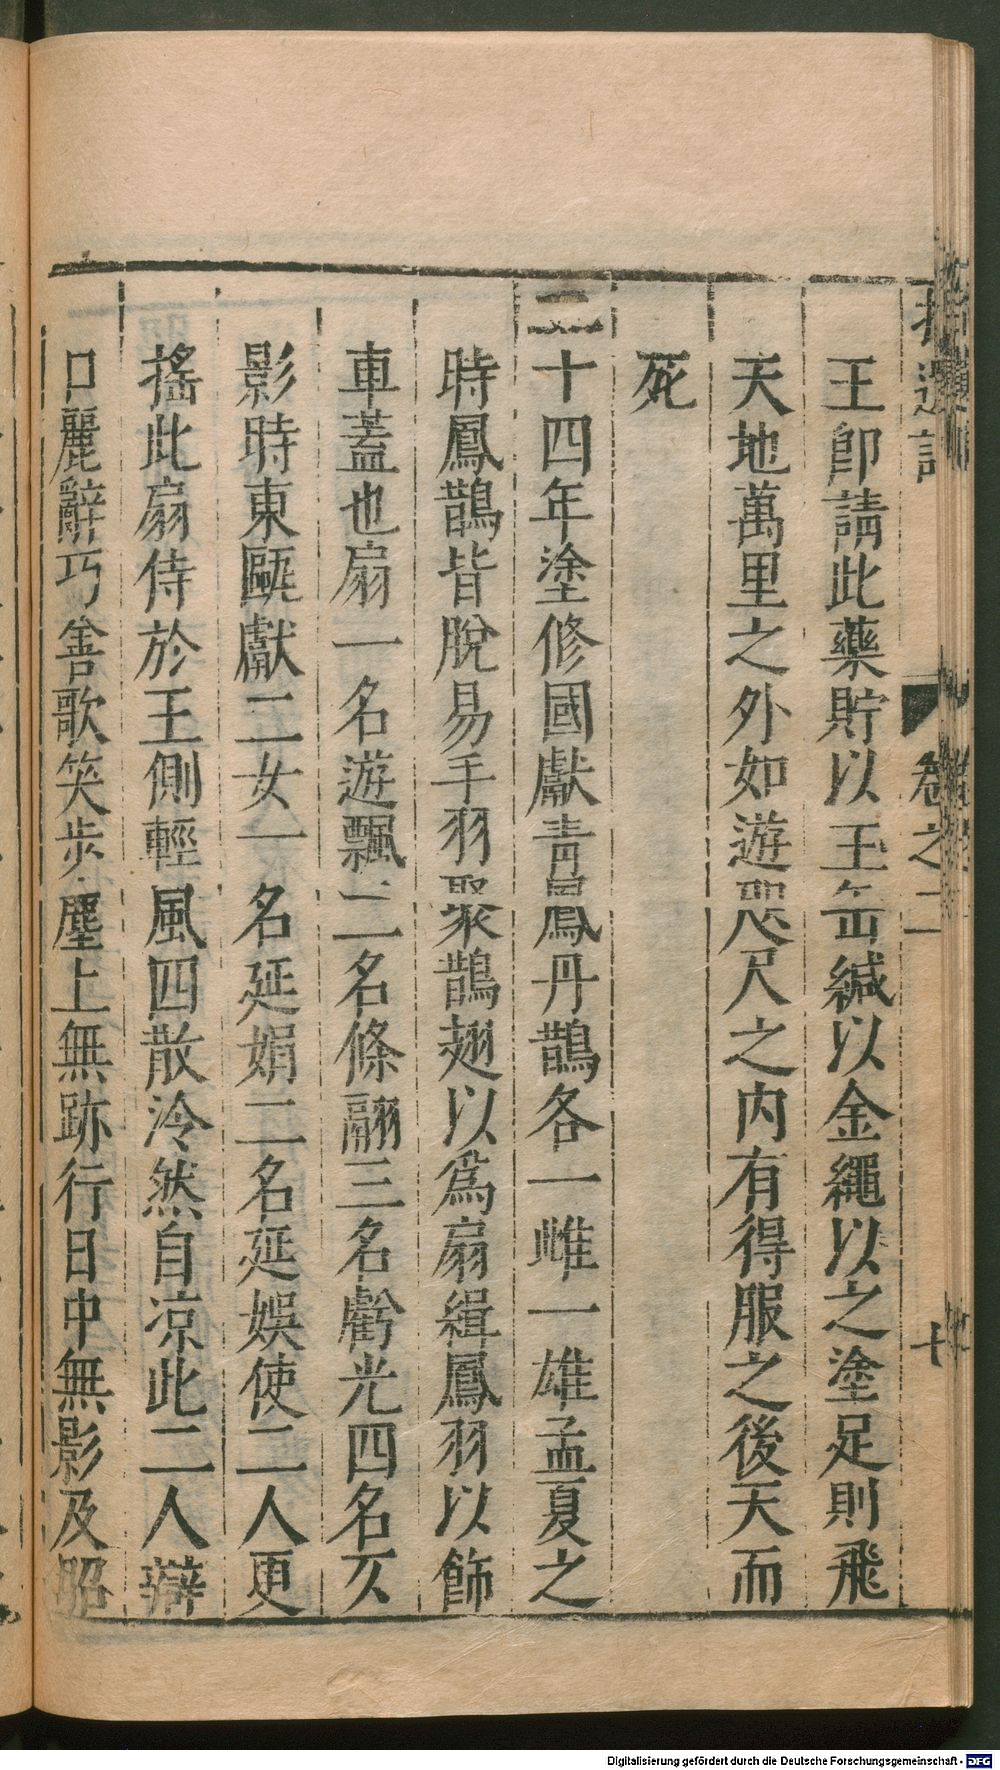 拾遺記 卷之二 十
王卽請此藥貯以玉缶緘以金繩以之塗足則飛
天地萬里之外如遊咫尺之內有得服之後天而
死
二十四年塗修國獻青鳳丹鵲各一雌一雄孟夏之
時鳳鵲皆脫易手羽聚鵲翅以爲扇緝鳳羽以飾
車蓋也扇一名遊飄二名條翮三名虧光四名仄
影時東甌獻二女一名延娟二名延娛使二人更
搖此扇侍於王側輕風四散泠然自凉此二人辯
口麗辭巧善歌笑步塵上無跡行日中無影及昭
Digitalisierung gefördert durch die Deutsche Forschungsgemeinschaft - DFG